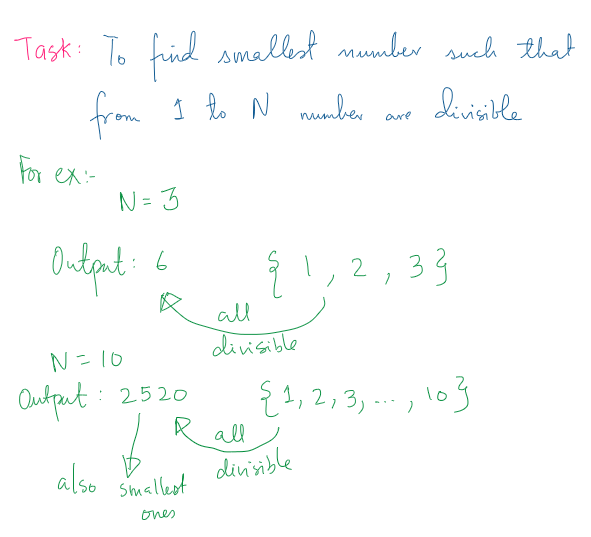 Task: To find smallest number such that
from 1 to N number are divisible
For ex:-
N = 3
Output: 6 { 1, 2, 3 }
all
divisible
N = 10
Output: 2520 { 1, 2, 3, ..., 10 }
all
divisible
also smallest
ones